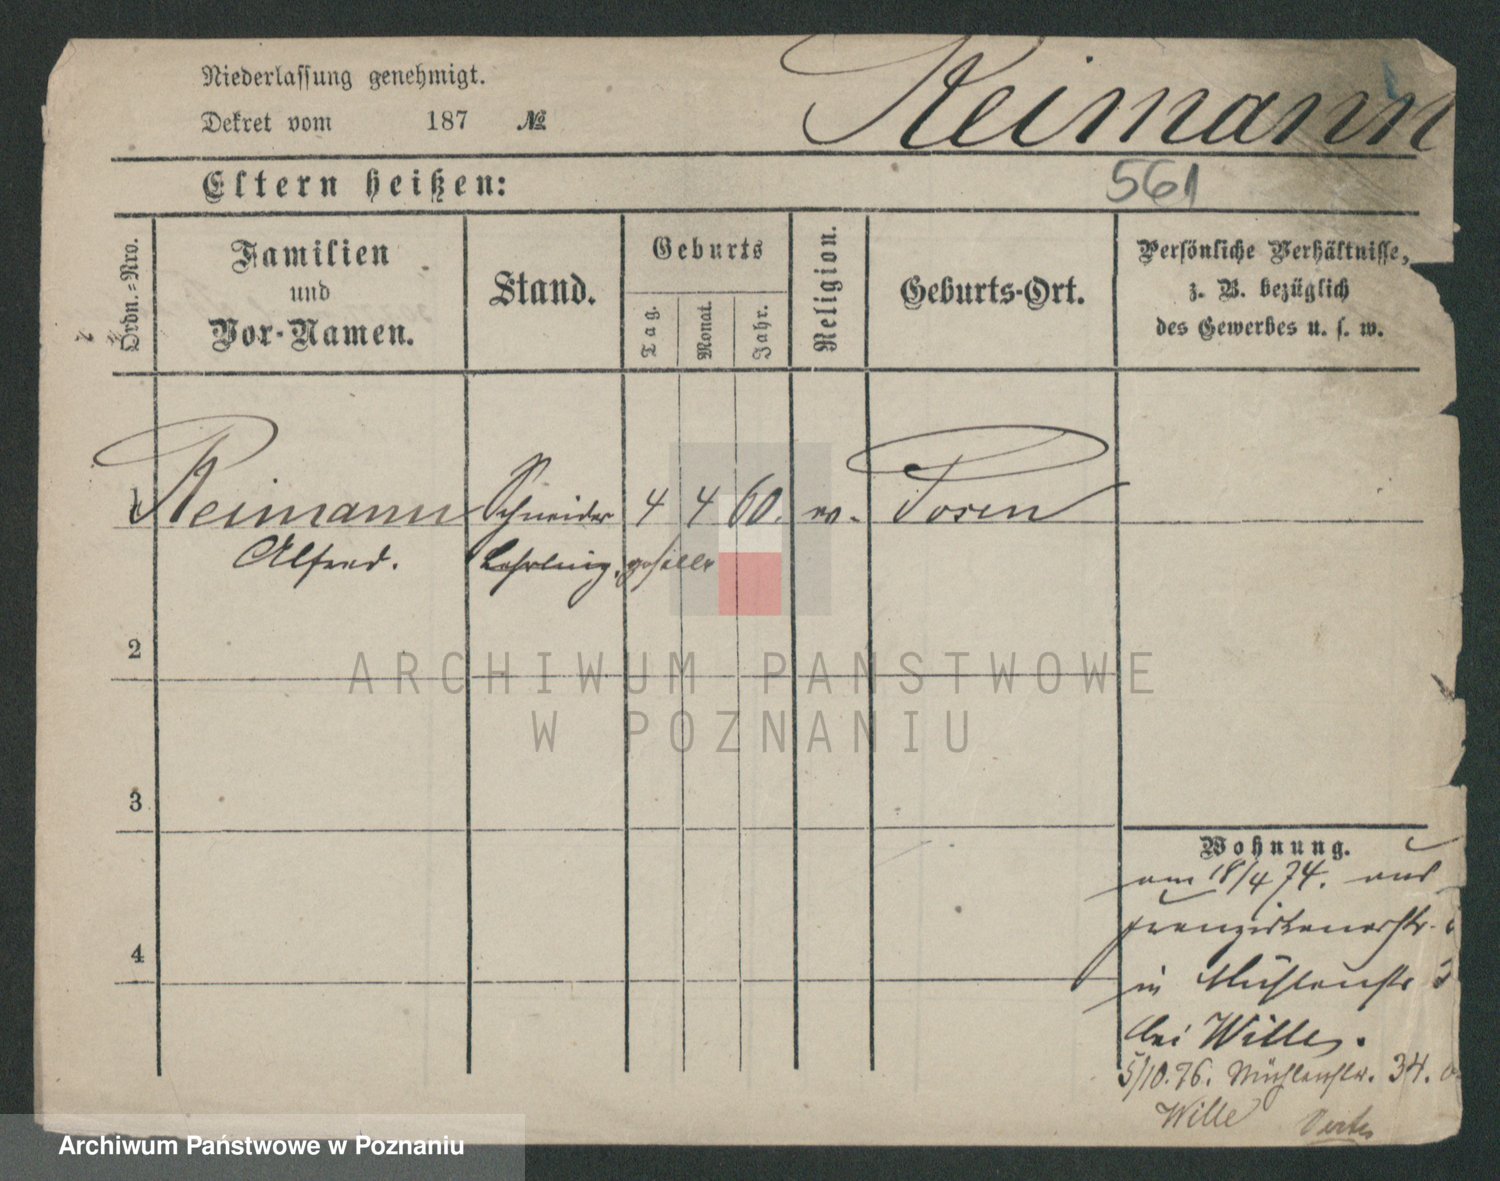 Niederlassung genehmigt.
Dekret vom 187 №
Reimann
Eltern heißen:
561
Ordn.-Nro.
Familien
und
Vor-Namen.
Stand.
Geburts
Tag.
Monat.
Jahr.
Religion.
Geburts-Ort.
Persönliche Verhältnisse,
z. B. bezüglich
des Gewerbes u. s. w.
1 Reimann Schneider 4 4 60. ev. Posen
Alfred. Lehrling. geselle
2
3
4
Wohnung.
am 18/4 74. aus
Franziskanerstr.
in Mühlenstr
bei Wille.
5/10.76. Mühlenstr. 34.
Wille
ARCHIWUM PAŃSTWOWE
W POZNANIU
Archiwum Państwowe w Poznaniu